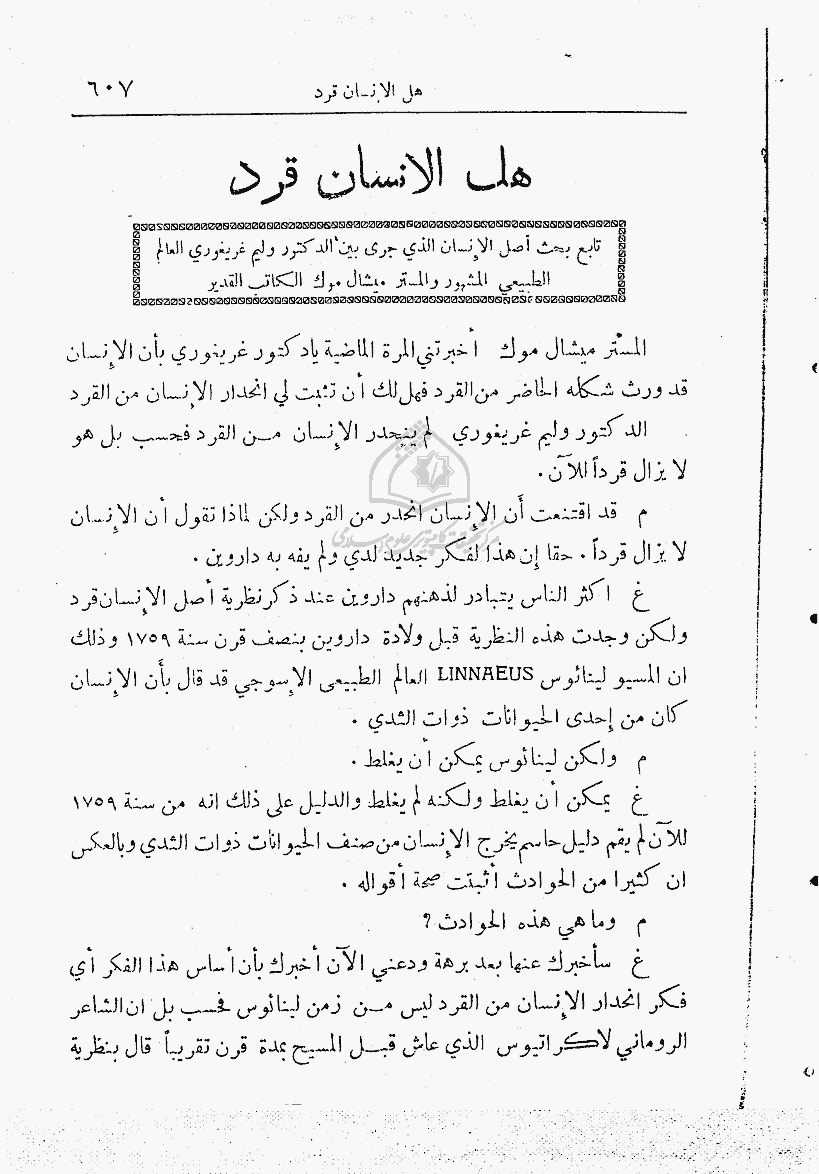 هل الإنسان قرد ٦٠٧
هل الانسان قرد
تابع بحث أصل الإنسان الذي جرى بين الدكتور وليم غريغوري العالم
الطبيعي المشهور والمستر ميشال موك الكاتب القدير
المستر ميشال موك أخبرتني المرة الماضية يادكتور غريغوري بأن الإنسان
قد ورث شكله الحاضر من القرد فهل لك أن تثبت لي انحدار الإنسان من القرد
الدكتور وليم غريغوري لم ينحدر الإنسان من القرد فحسب بل هو
لا يزال قرداً للآن .
م قد اقتنعت أن الإنسان انحدر من القرد ولكن لماذا تقول أن الإنسان
لا يزال قرداً . حقا إن هذا لفكر جديد لدي ولم يفه به داروين .
غ اكثر الناس يتبادر لذهنهم داروين عند ذكر نظرية أصل الإنسان قرد
ولكن وجدت هذه النظرية قبل ولادة داروين بنصف قرن سنة ١٧٥٩ وذلك
ان المسيو لينائوس LINNAEUS العالم الطبيعى الإسوجي قد قال بأن الإنسان
كان من إحدى الحيوانات ذوات الثدي .
م ولكن لينائوس يمكن أن يغلط .
غ يمكن أن يغلط ولكنه لم يغلط والدليل على ذلك انه من سنة ١٧٥٩
للآن لم يقم دليل حاسم يخرج الإنسان من صنف الحيوانات ذوات الثدي وبالعكس
ان كثيرا من الحوادث أثبتت صحة أقواله .
م وما هي هذه الحوادث ?
غ سأخبرك عنها بعد برهة ودعني الآن أخبرك بأن أساس هذا الفكر أي
فكر انحدار الإنسان من القرد ليس من زمن لينائوس فحسب بل ان الشاعر
الروماني لاكراتيوس الذي عاش قبل المسيح بمدة قرن تقريباً قال بنظرية